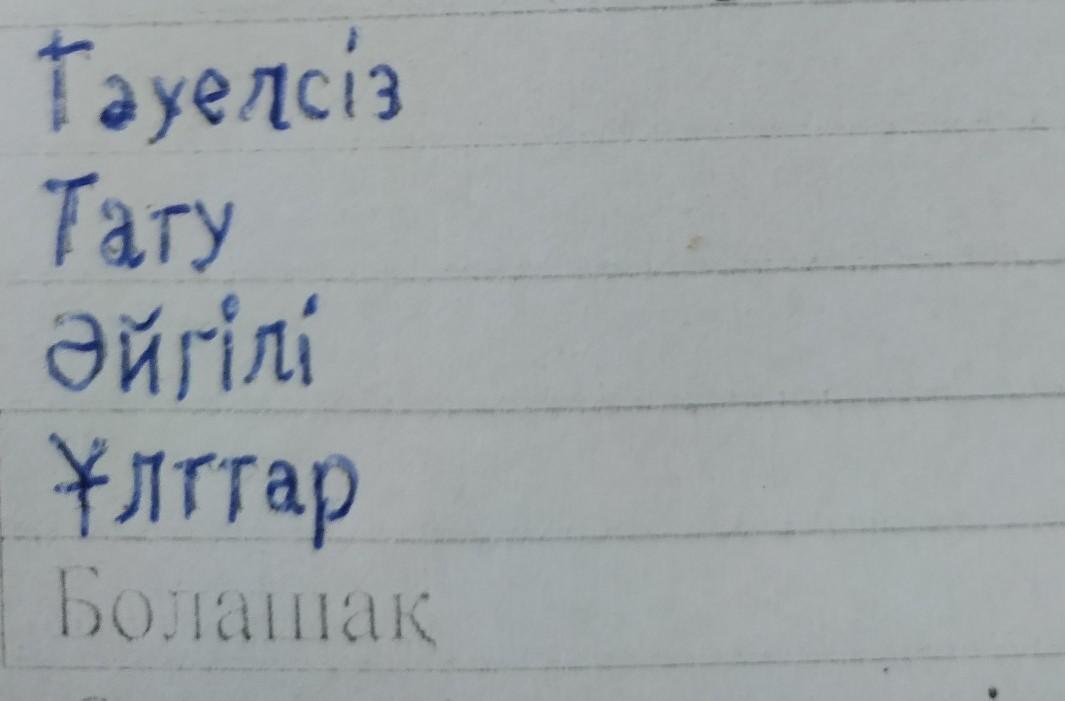 Тәуелсіз
Тату
Әйгілі
Ұлттар
Болашақ